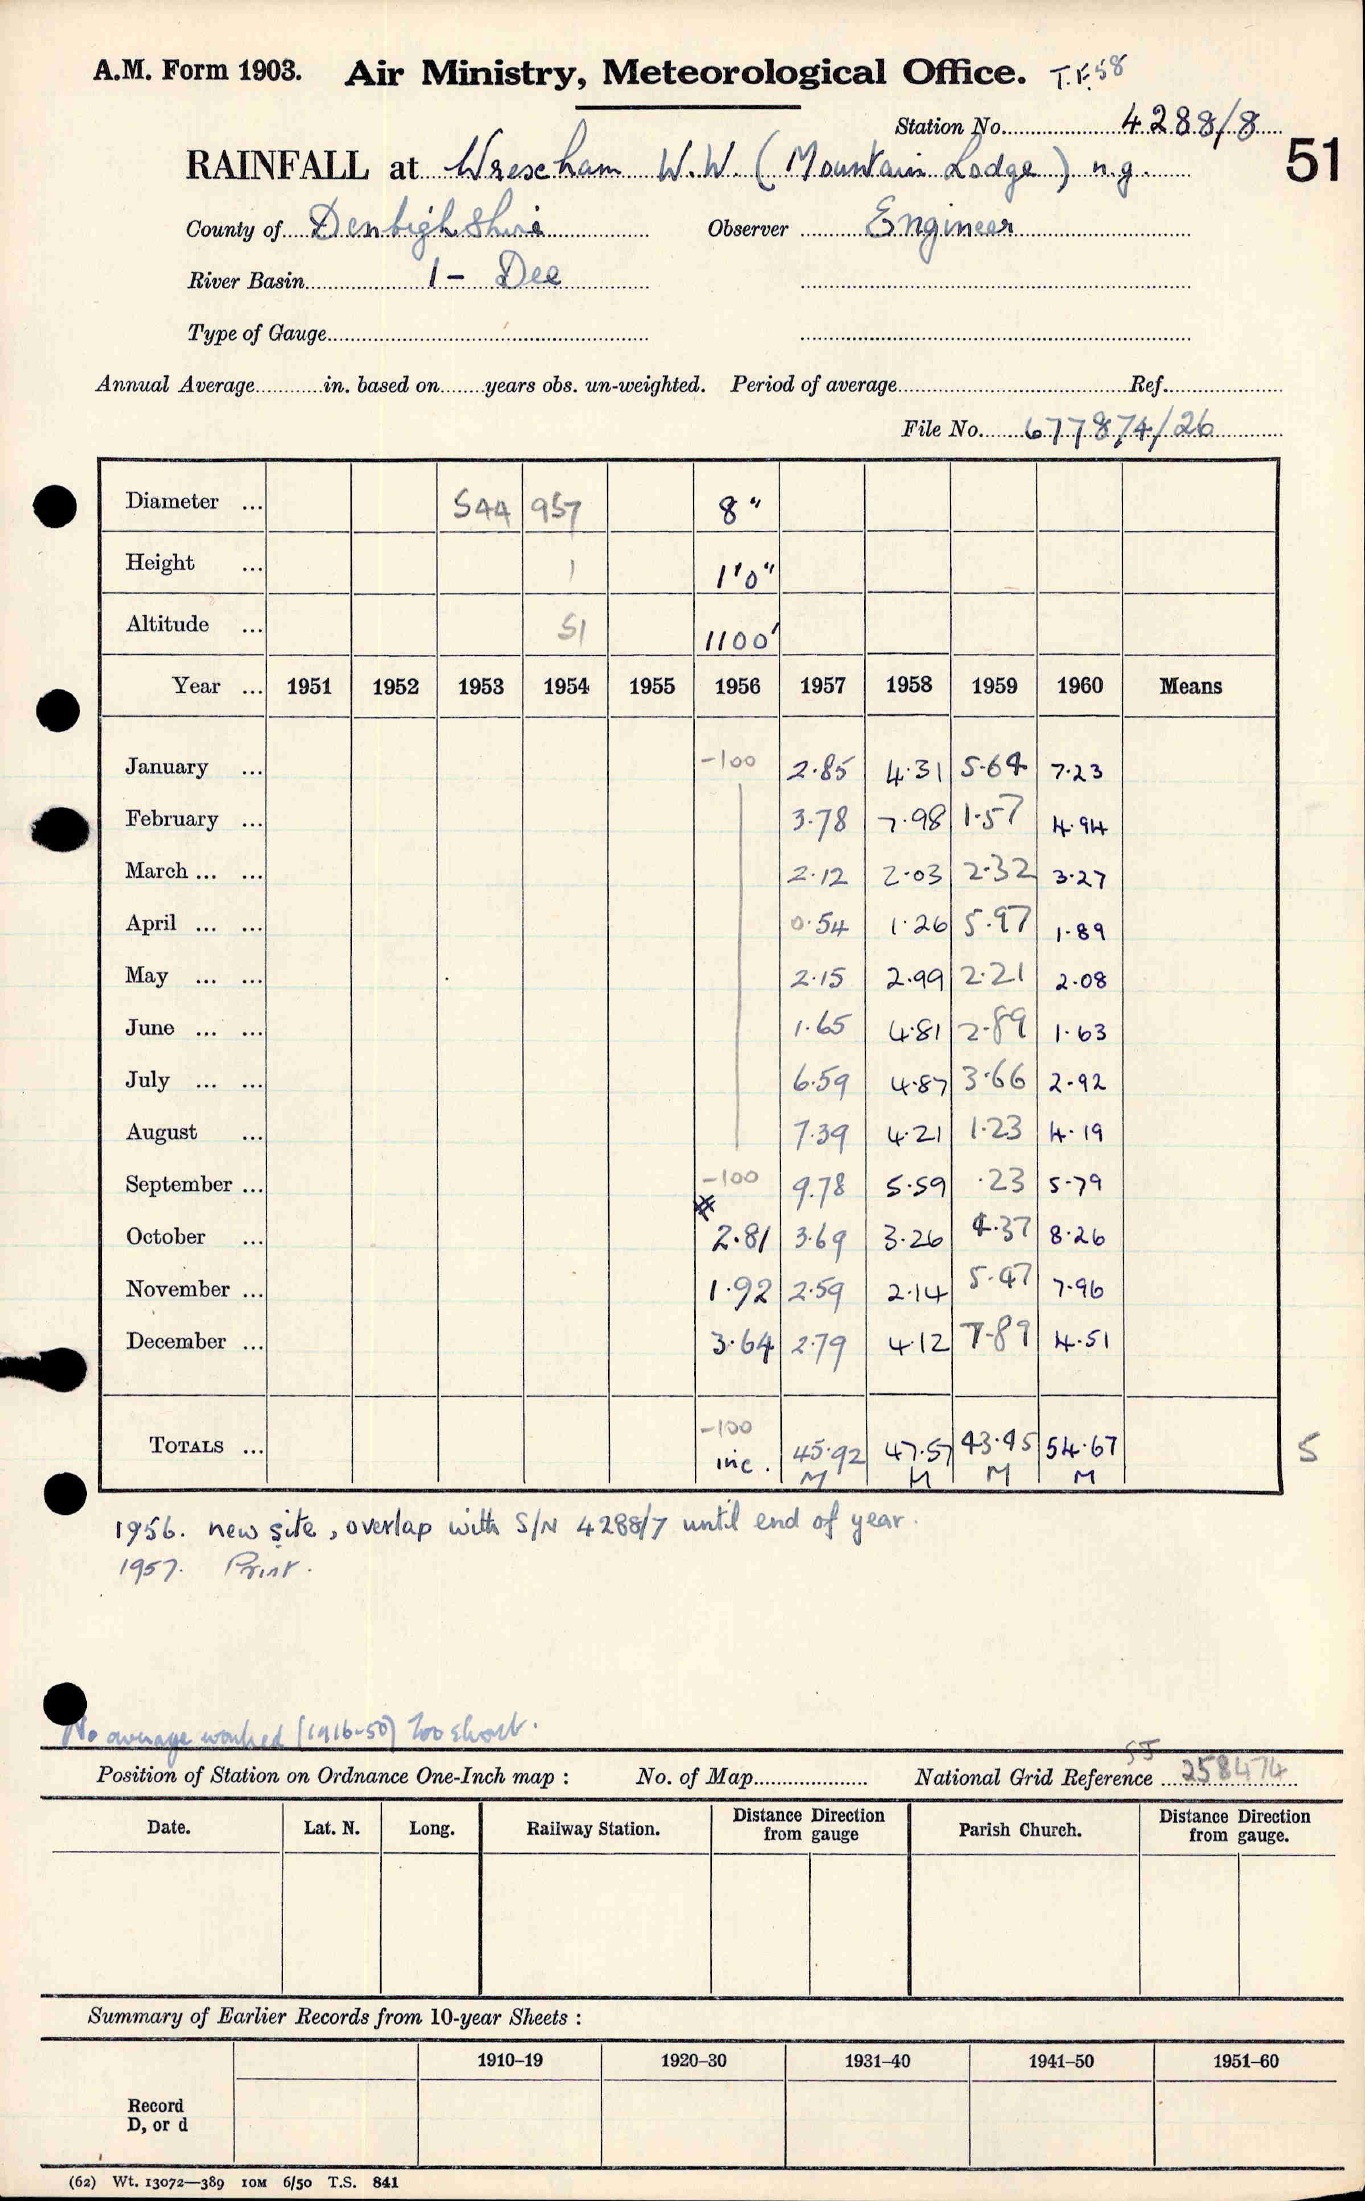 A.M. Form 1903. Air Ministry, Meteorological Office. T.F.58
Station No. 4288/8
51
RAINFALL at Wrescham W.W. (Mountain Lodge) n.g.
County of Denbighshire Observer Engineer
River Basin 1 - Dee
Type of Gauge
Annual Average in. based on years obs. un-weighted. Period of average Ref.
File No. 677874/26
Diameter ... 544 957 8"
Height ... 1 1'0"
Altitude ... 51 1100'
Year ... 1951 1952 1953 1954 1955 1956 1957 1958 1959 1960 Means
January ... -100 2.85 4.31 5.64 7.23
February ... 3.78 7.98 1.57 4.94
March ... ... 2.12 2.03 2.32 3.27
April ... ... 0.54 1.26 5.97 1.89
May ... ... 2.15 2.99 2.21 2.08
June ... ... 1.65 4.81 2.89 1.63
July ... ... 6.59 4.87 3.66 2.92
August ... 7.39 4.21 1.23 4.19
September ... -100 9.78 5.59 .23 5.79
October ... 2.81 3.69 3.26 4.37 8.26
November ... 1.92 2.59 2.14 5.47 7.96
December ... 3.64 2.79 4.12 7.89 4.51
-100
TOTALS ... inc. 45.92 47.57 43.45 54.67 5
M M M M
1956. new site, overlap with S/N 4288/7 until end of year.
1957. Print.
No average worked (1916-50) too short.
SJ
Position of Station on Ordnance One-Inch map : No. of Map National Grid Reference 258474
Date. Lat. N. Long. Railway Station. Distance Direction from gauge Parish Church. Distance Direction from gauge.
Summary of Earlier Records from 10-year Sheets :
1910–19 1920–30 1931–40 1941–50 1951–60
Record
D, or d
(62) Wt. 13072—389 10M 6/50 T.S. 841